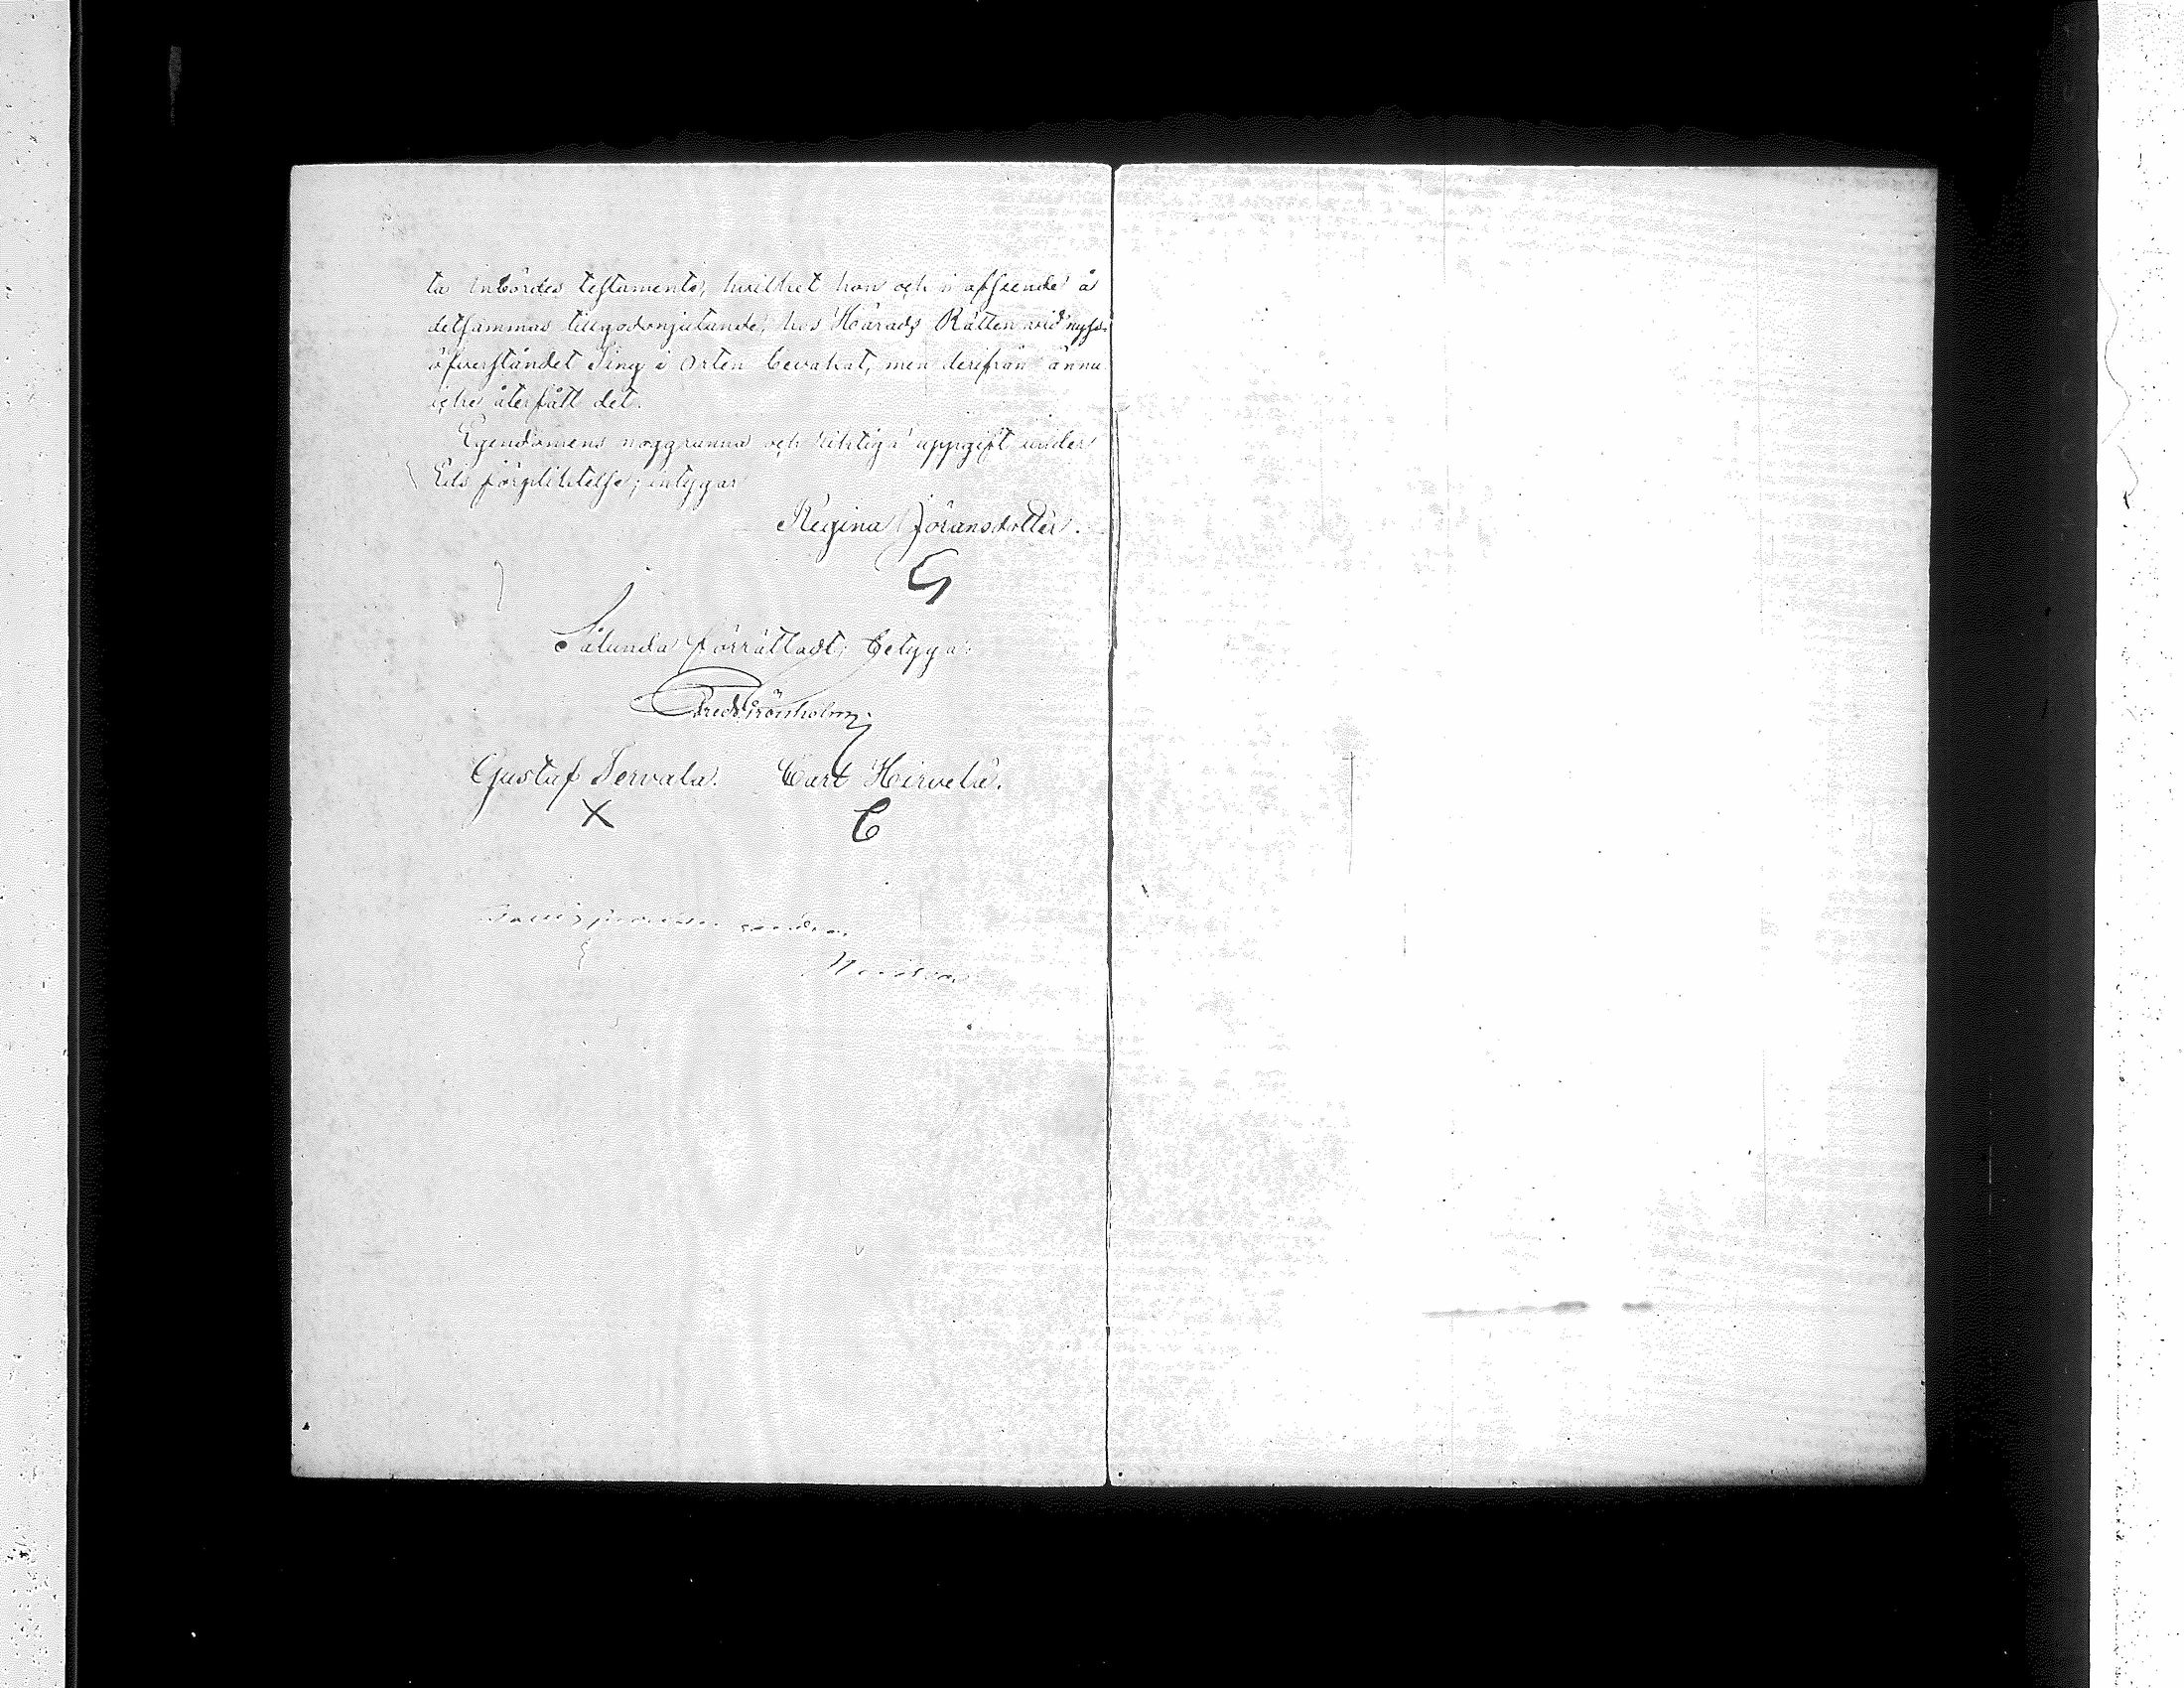 ta inbördes testamente, hvilket hon och i afseende å
detsammas tillgodonjutande, hos Härads Rätten vid nyss
öfverståndet Ting i Orten bevakat, men derifrån ännu
icke återfått det.
Egendomens noggranna och riktiga uppgift under
Eds förpliktelse, intygar
Regina Jöransdotter.
G
Sålunda förrättadt, betyga:
Fred. Grönholm
Gustaf Tervala. Carl Hirvelä.
X C